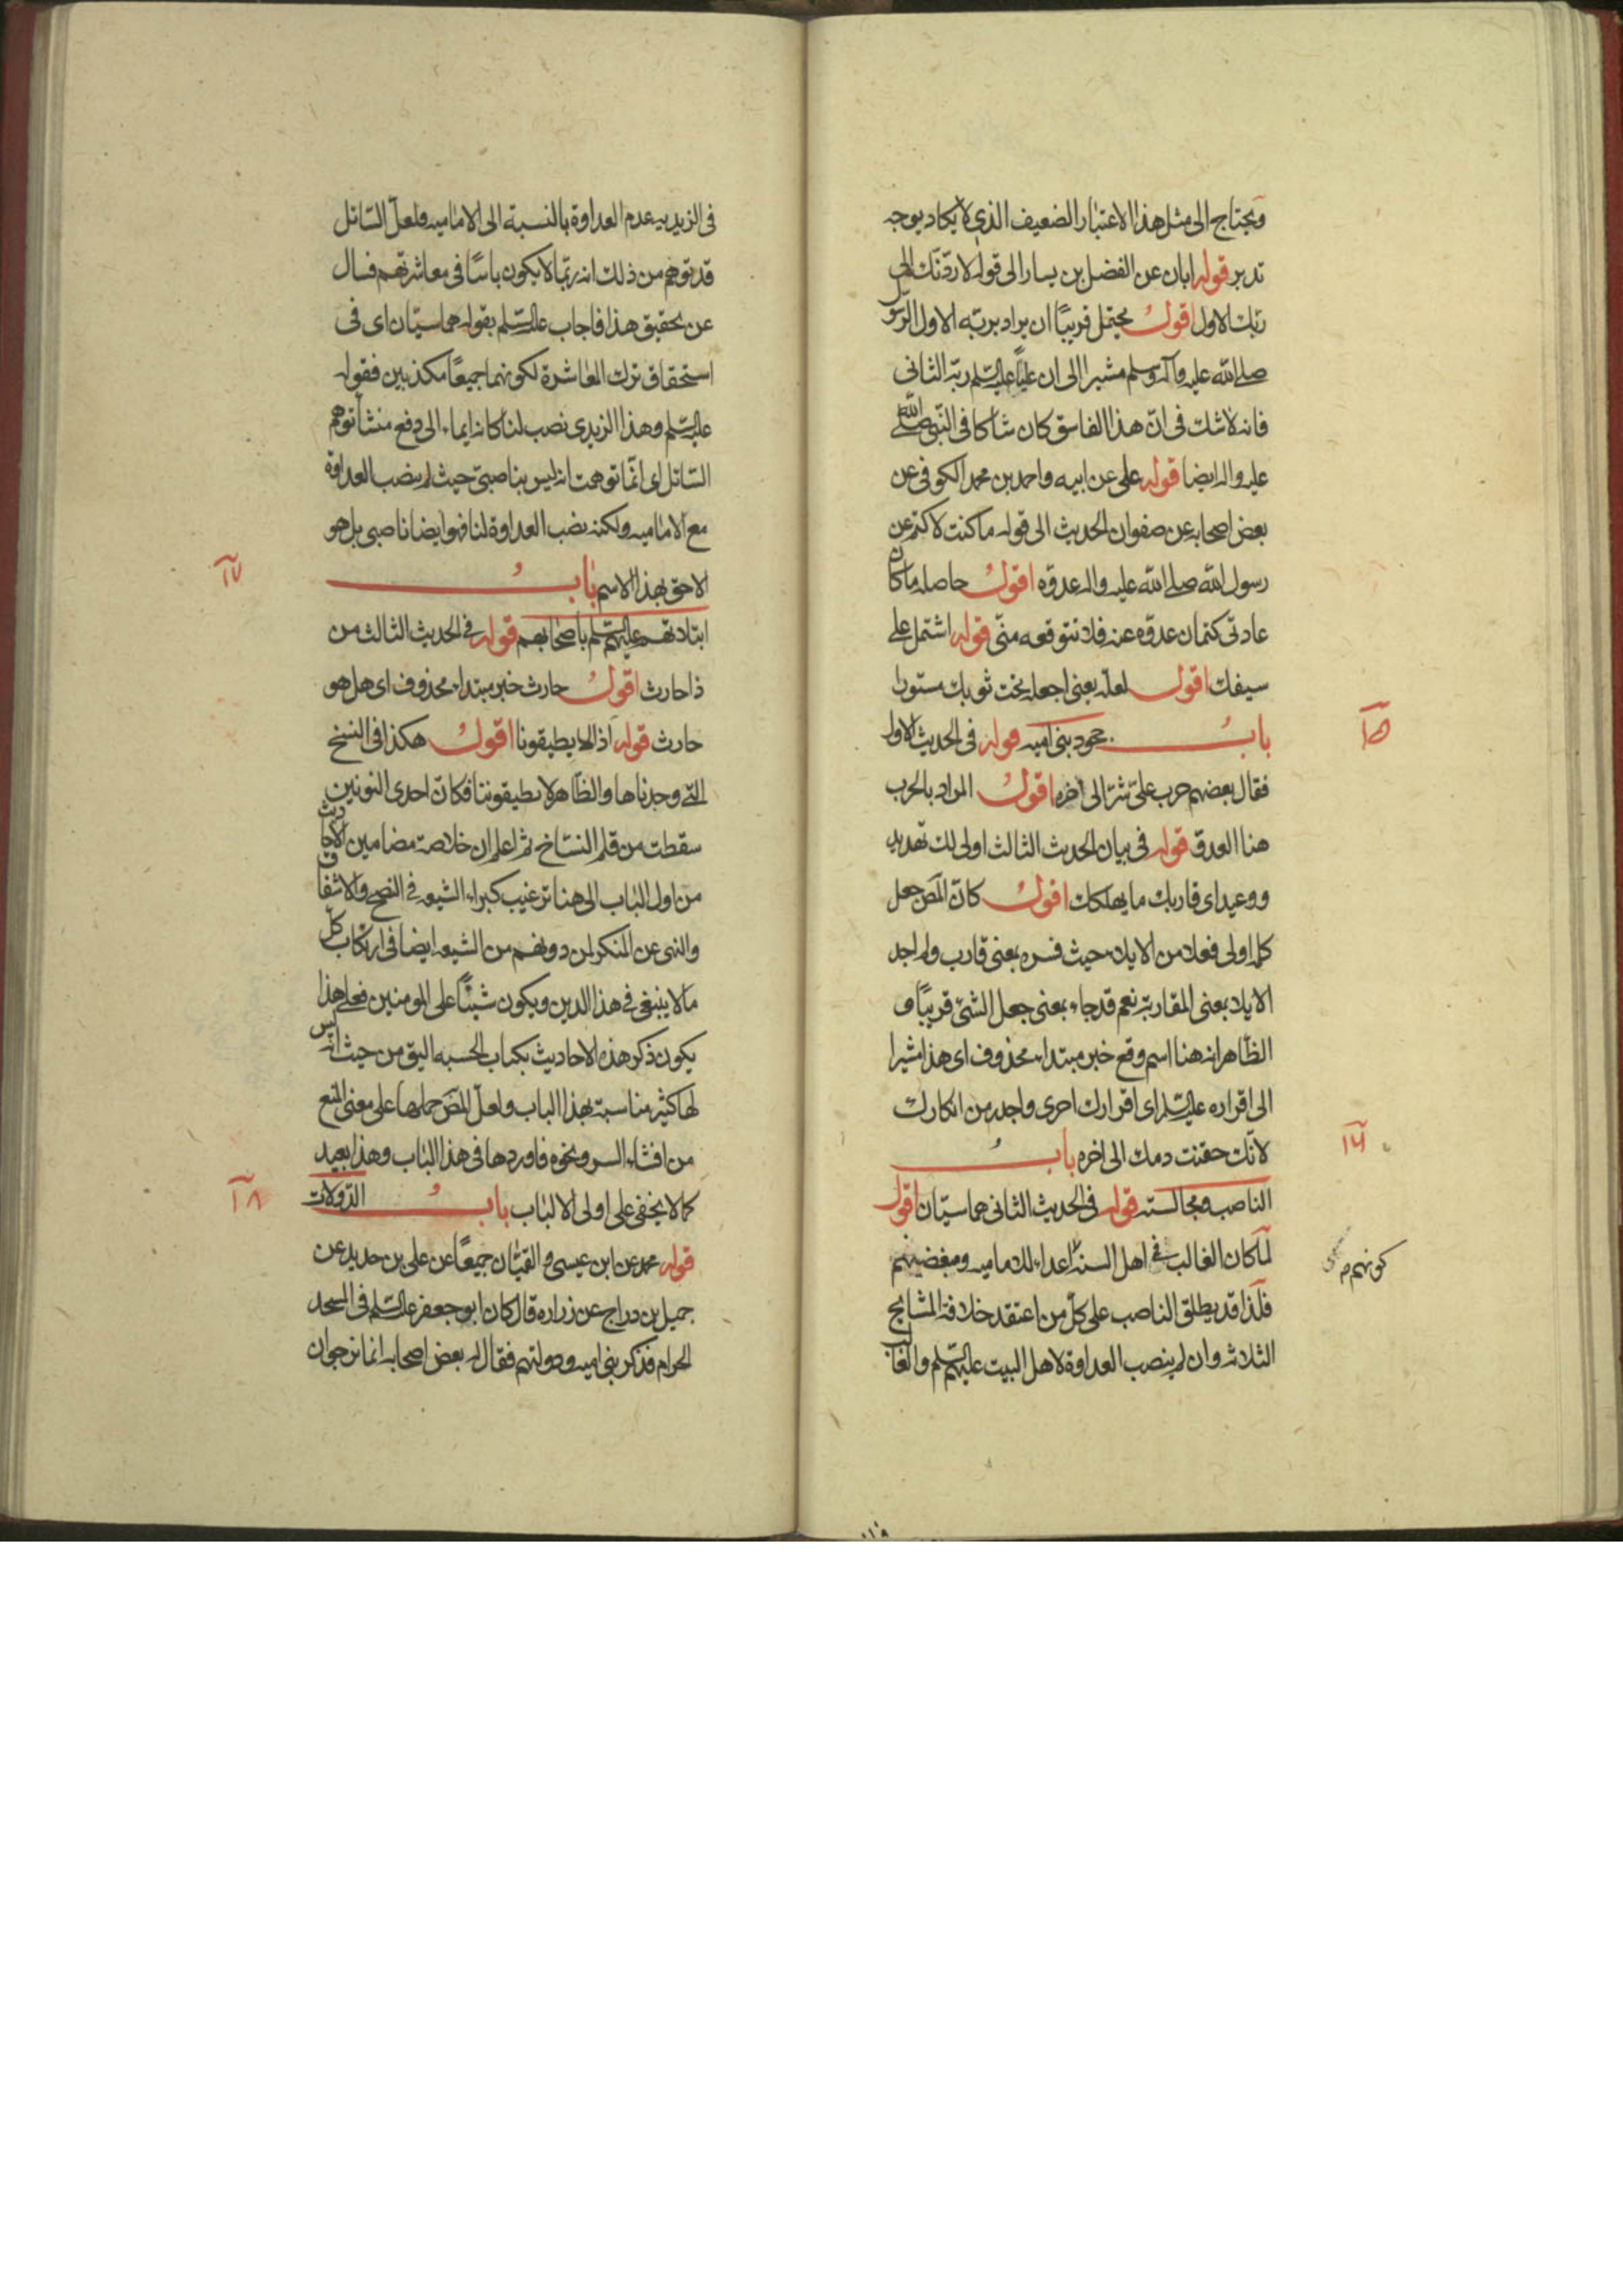 ويحتاج الى مثل هذا الاعتبار الضعيف الذي لا يكاد يوجه
تدبر قوله ابان عن الفضل بن يسار الى قوله لاردّنك الى
ربك الاول اقول يحتمل قريبًا ان يراد بربّه الاول الرسول
صلى الله عليه وآله وسلم مشيرا الى ان عليًا عليه السّلم ربّه الثانى
فانه لا شك فى انّ هذا الفاسق كان شاكا فى النّبى صلى الله
عليه واله ايضا قوله على عن ابيه واحمد بن محمد الكوفى عن
بعض اصحابه عن صفوان الحديث الى قوله ما كنت لاكتم عن
رسول الله صلى الله عليه واله عدوّه اقول حاصله ما كان
عادتى كتمان عدوّه عنه فلا نتوقعه منّى قوله اشتمل على
سيفك اقول لعلّه يعنى اجعله تحت ثوبك مستورا
١٥
باب جحود بنى اميه قوله فى الحديث الاول
فقال بعضهم حرب علىّ شرّ الى اخره اقول المراد بالحرب
هنا العدوّ قوله فى بيان الحديث الثالث اولى لك تهديد
ووعيد اى قاربك ما يهلكك اقول كانّ المصّ جعل
كله اولى فعلا من الايلاء حيث فسره بمعنى قارب ولم اجد
الايلاء بمعنى المقاربة نعم قد جاء بمعنى جعل الشئ قريبًا و
الظاهر انه هنا اسم وقع خبر مبتداء محذوف اى هذا مشيرا
الى اقراره عليه السّلم اى اقرارك احرى واجدر من انكارك
١٦
لانّك حقنت دمك الى اخره باب
الناصب ومجالسته قوله فى الحديث الثانى هما سيّان اقول
لما كان الغالب فى اهل السنة اعداء للاماميه ومبغضيهم
كونهم
فلذا قد يطلق الناصب على كلّ من اعتقد خلافة المشايخ
الثلاثه وان لم ينصب العداوة لاهل البيت عليهم السّلم والغالب
فى الزيديه عدم العداوة بالنسبة الى الاماميه ولعلّ السّائل
قد توهّم من ذلك انه ربّما لا يكون باسًا فى معاشرتهم فسال
عن تحقيق هذا فاجاب عليه السّلم بقوله هما سيّان اى فى
استحقاق ترك المعاشرة لكونهما جميعًا مكذبين فقوله
عليه السّلم وهذا الزيدى نصب لنا كانه ايماء الى دفع منشأ توهم
السّائل اى انّما توهمت انه ليس بناصبىّ حيث لم ينصب العداوة
مع الاماميه ولكنه نصب العداوة لنا فهو ايضا ناصبى بل هو
١٧
الاحق بهذا الاسم باب
ابتلائهم عليهم السّلم باصحابهم قوله فى الحديث الثالث من
ذا حارث اقول حارث خبر مبتداء محذوف اى هل هو
حارث قوله اذا لا يطيقونا اقول هكذا فى النسخ
التى وجدناها والظاهر لا يطيقوننا فكانّ احدى النونين
سقطت من قلم النسّاخ ثم اعلم ان خلاصة مضامين الاحاديث
من اول الباب الى هنا ترغيب كبراء الشيعه فى النصح والاشفاق
والنهى عن المنكر لمن دونهم من الشيعه ايضا فى ارتكاب كلّ
ما لا ينبغى فى هذا الدين ويكون شينًا على المومنين فعلى هذا
يكون ذكر هذه الاحاديث بكتاب الحسبه اليق من حيث انه ليس
لها كثير مناسبة بهذا الباب ولعلّ المصّ حملها على معنى المنع
من افشاء السر ونحوه فاوردها فى هذا الباب وهذا بعيد
١٨
كما لا يخفى على اولى الالباب باب الدّولات
قوله محمد عن ابن عيسى و القميّان جميعًا عن على بن حديد عن
جميل بن دراج عن زراره قال كان ابو جعفر عليه السّلم فى المسجد
الحرام فذكر بنى اميه ودولتهم فقال له بعض اصحابه انما نرجو ان